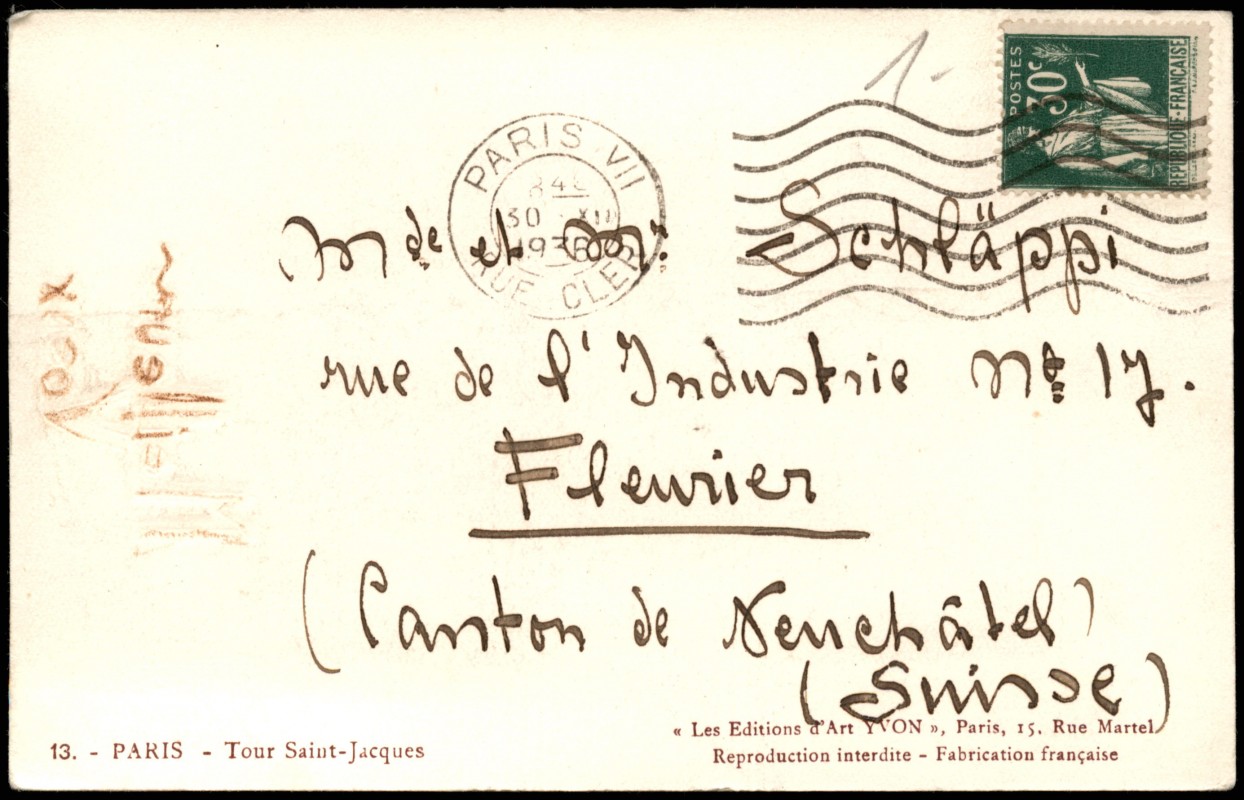 1-
POSTES
30c
REPUBLIQUE-FRANÇAISE
PARIS VII
30 XII
RUE CLER
Mde et Mr. Schläppi
rue de l'Industrie No 17.
Fleurier
(Canton de Neuchâtel)
(Suisse)
« Les Editions d'Art YVON », Paris, 15, Rue Martel
Reproduction interdite - Fabrication française
13. - PARIS - Tour Saint-Jacques